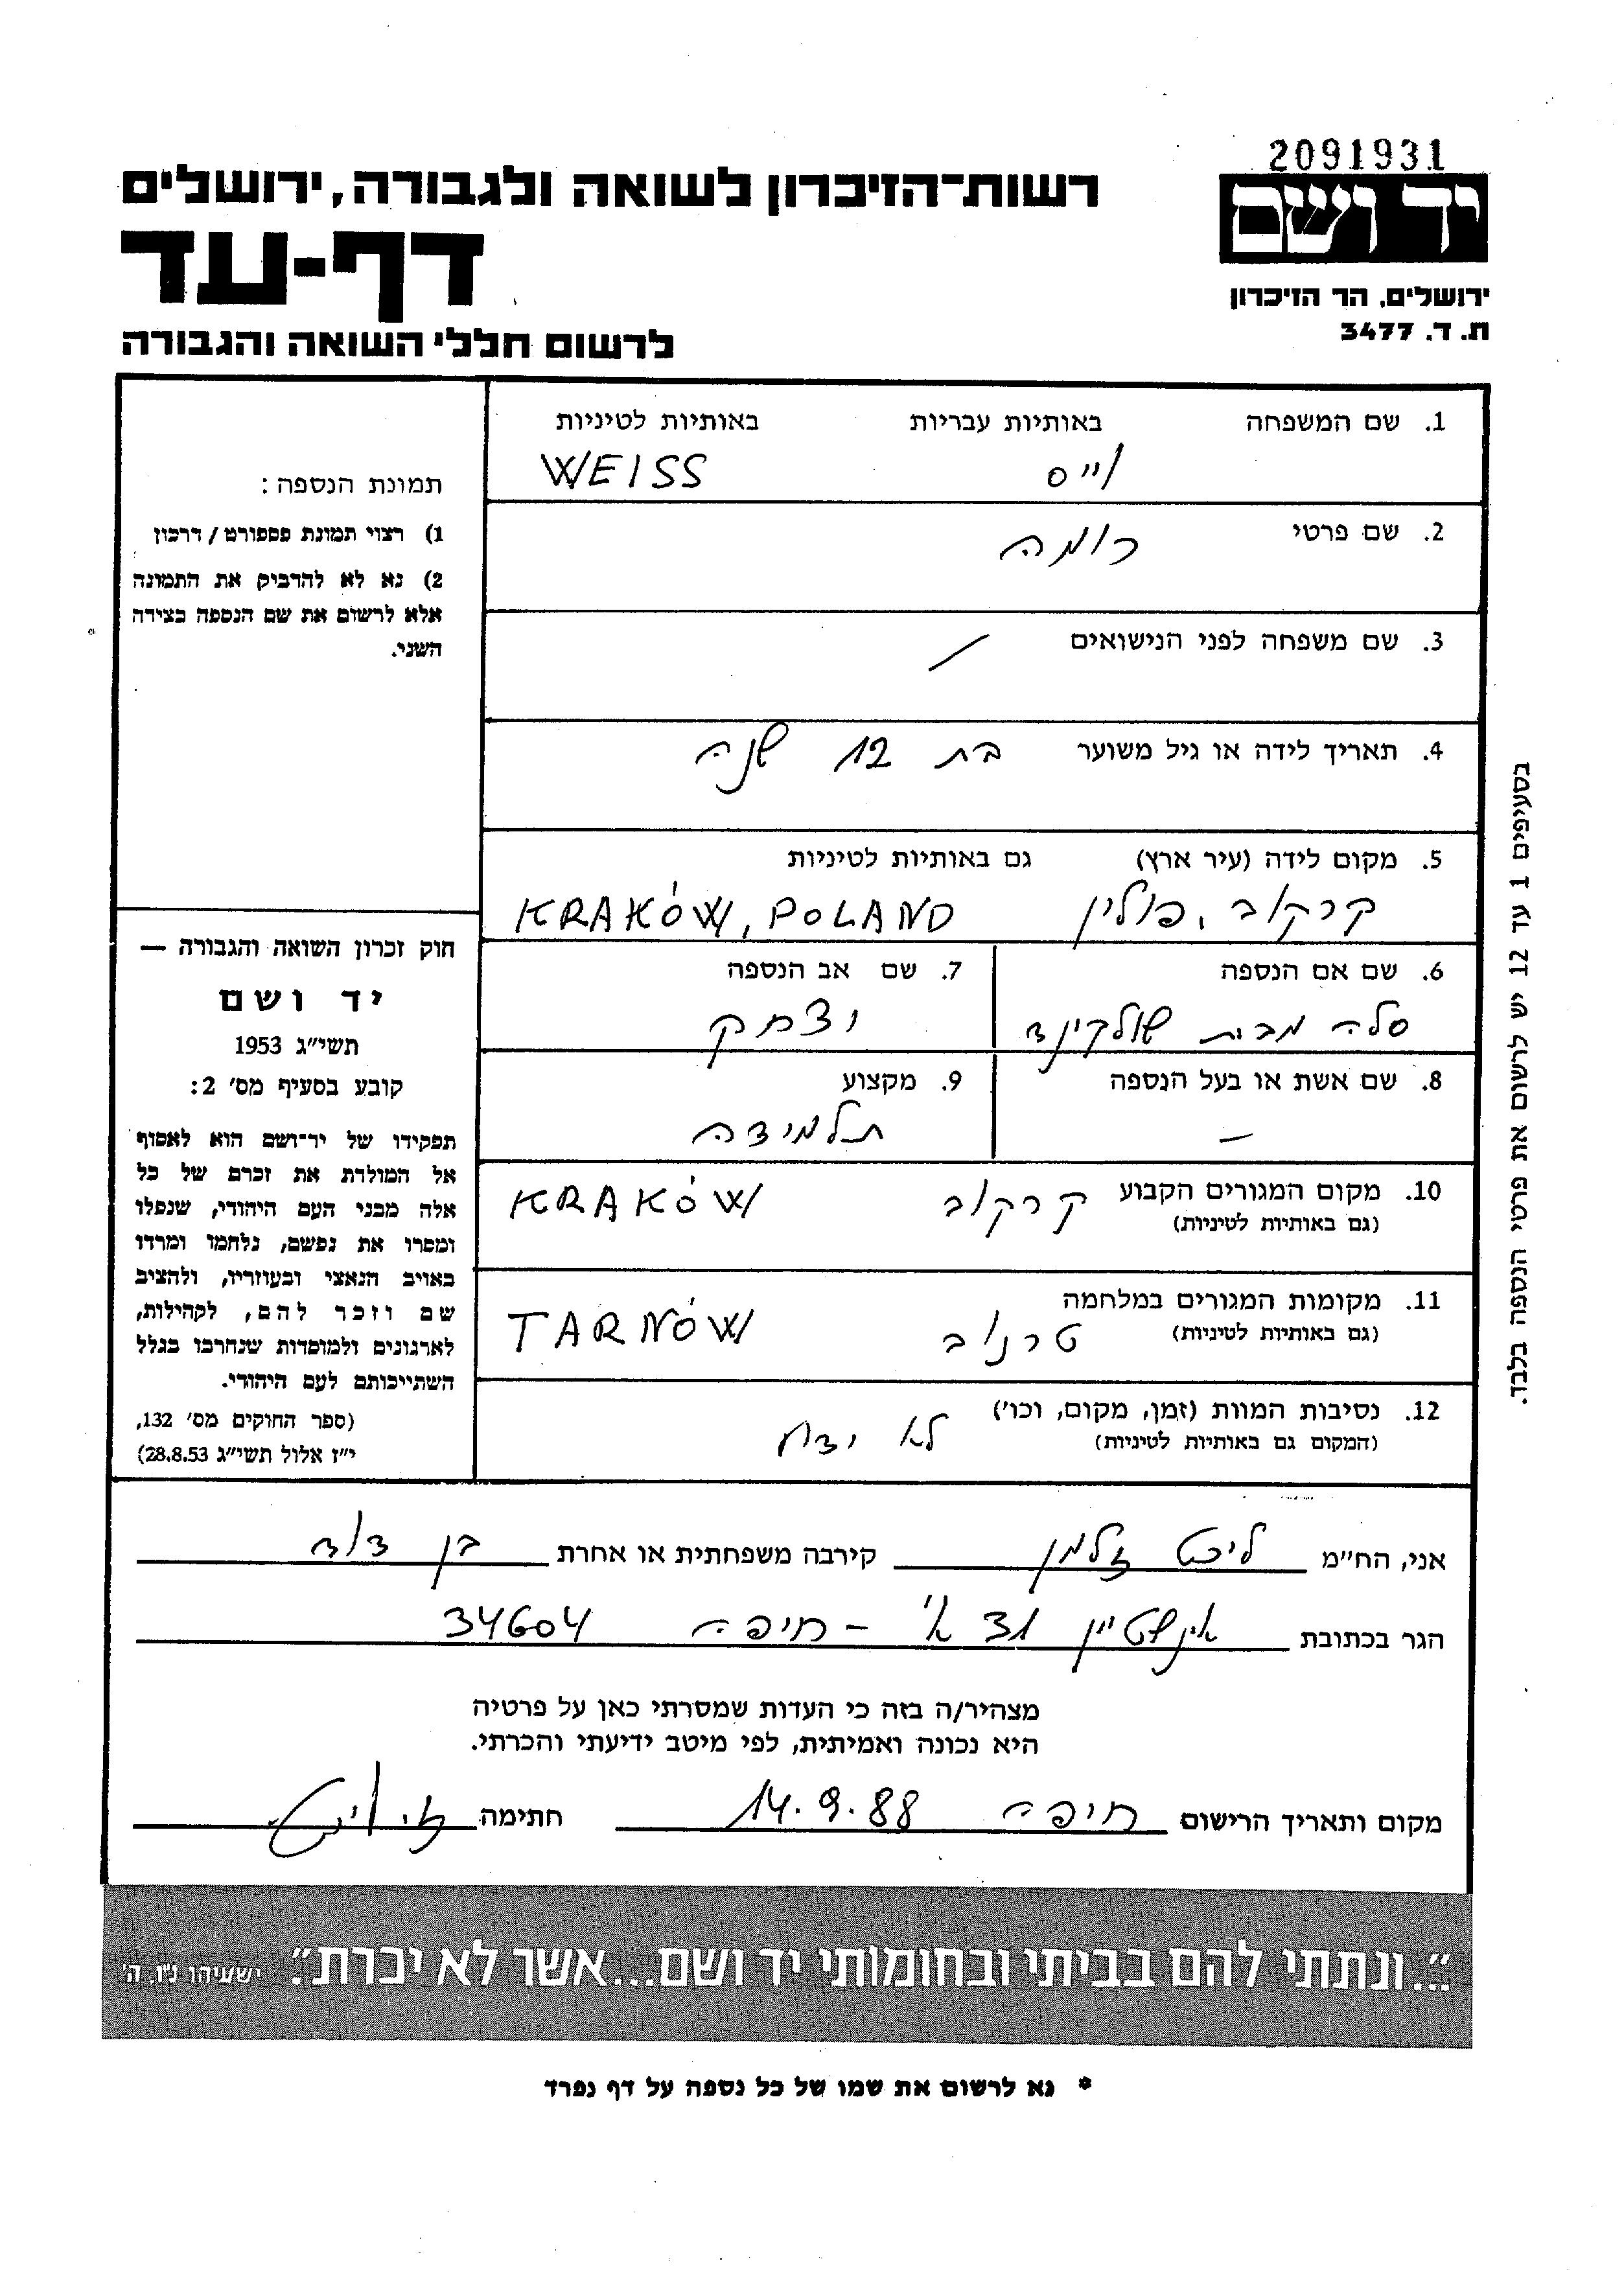 2091931
יד ושם
ירושלים, הר הזיכרון
ת. ד. 3477
רשות־הזיכרון לשואה ולגבורה, ירושלים
דף-עד
לרשום חללי השואה והגבורה
1. שם המשפחה באותיות עבריות באותיות לטיניות
וייס WEISS
2. שם פרטי
רומה
3. שם משפחה לפני הנישואים /
4. תאריך לידה או גיל משוער בת 12 שנה
5. מקום לידה (עיר ארץ) גם באותיות לטיניות
קרקוב, פולין KRAKÓW, POLAND
6. שם אם הנספה 7. שם אב הנספה
סלה מבית שולקינד יצחק
8. שם אשת או בעל הנספה 9. מקצוע
– תלמידה
10. מקום המגורים הקבוע קרקוב KRAKÓW
(גם באותיות לטיניות)
11. מקומות המגורים במלחמה
(גם באותיות לטיניות) טרנוב TARNÓW
12. נסיבות המוות (זמן, מקום, וכו')
(המקום גם באותיות לטיניות) לא ידוע
תמונת הנספה:
1) רצוי תמונת פספורט / דרכון
2) נא לא להדביק את התמונה
אלא לרשום את שם הנספה בצידה
השני.
חוק זכרון השואה והגבורה —
יד ושם
תשי"ג 1953
קובע בסעיף מס' 2:
תפקידו של יד־ושם הוא לאסוף
אל המולדת את זכרם של כל
אלה מבני העם היהודי, שנפלו
ומסרו את נפשם, נלחמו ומרדו
באויב הנאצי ובעוזריו, ולהציב
שם וזכר להם, לקהילות,
לארגונים ולמוסדות שנחרבו בגלל
השתייכותם לעם היהודי.
(ספר החוקים מס' 132,
י"ז אלול תשי"ג 28.8.53)
בסעיפים 1 עד 12 יש לרשום את פרטי הנספה בלבד.
אני, הח"מ ליכט זלמן קירבה משפחתית או אחרת בן דוד
הגר בכתובת אינשטיין 13 א' – חיפה 34604
מצהיר/ה בזה כי העדות שמסרתי כאן על פרטיה
היא נכונה ואמיתית, לפי מיטב ידיעתי והכרתי.
מקום ותאריך הרישום חיפה 14.9.88 חתימה
"...ונתתי להם בביתי ובחומותי יד ושם...אשר לא יכרת". ישעיהו נ"ו, ה'
* נא לרשום את שמו של כל נספה על דף נפרד